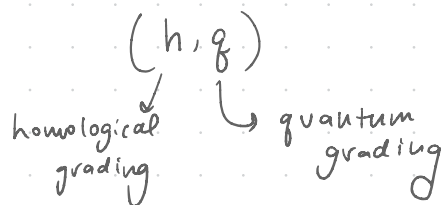 (h, q)
homological
grading
quantum
grading